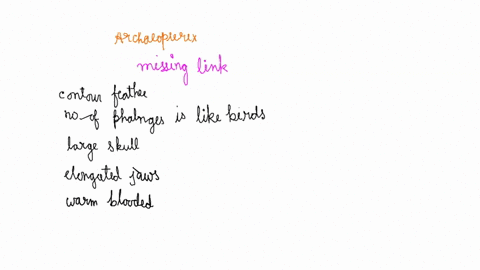 Archaeopterex
missing link
contour feathe
no. of phalnges is like birds
large skull
elongated jaws
warm blooded